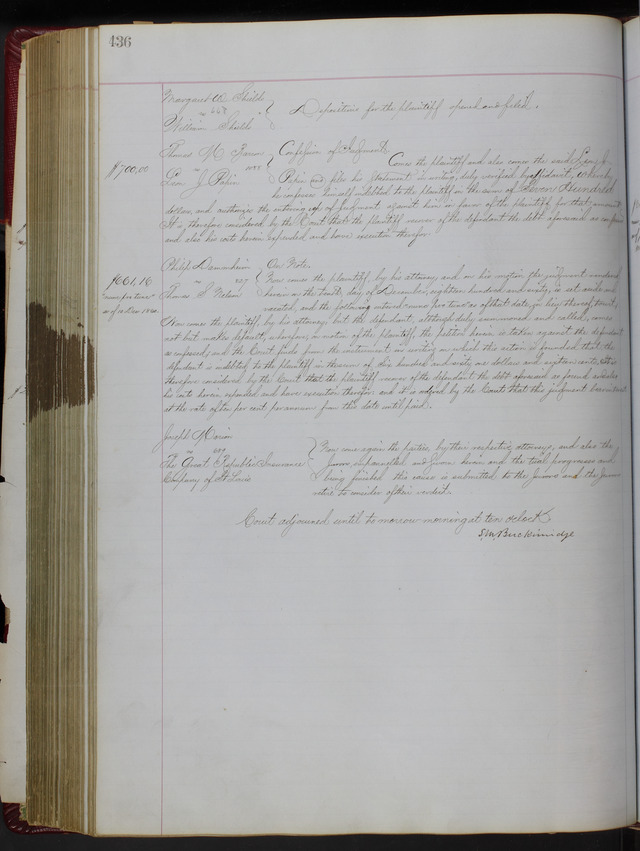 436
Margaret W. Shields
vs 448
William Shields
Depositions for the plaintiff opened and filed.
Thomas M.
vs
Leon J. Papin
Confession of Judgment
$700,00
Comes the plaintiff and also comes the said Leon J.
Papin and files his statement in writing, duly verified by affidavit, whereby
he confesses himself indebted to the plaintiff in the sum of Seven Hundred
dollars, and authorizes the entering up of Judgment against him in favor of the plaintiff for that amount
It is therefore considered by the Court that the plaintiff recover of the defendant the debt aforesaid as confessed
and also his costs herein expended and have execution therefor.
Philip
vs 407
Thomas S. Nelson
On Note.
$661,16
as of 10 Dec 1860.
Now comes the plaintiff, by his attorney and on his motion the judgment rendered
herein on the tenth day of December, eighteen hundred and sixty, is set aside and
vacated, and the following entered nunc pro tunc as of that date,
Now comes the plaintiff, by his attorney, but the defendant, although duly summoned and called, comes
not but makes default, wherefore, on motion of the plaintiff, the petition herein is taken against the defendant
as confessed, and the Court finds from the instrument in writing on which this action is founded that the
defendant is indebted to the plaintiff in the sum of six hundred and sixty one dollars and sixteen cents. It is
therefore considered by the Court that the plaintiff recover of the defendant the debt aforesaid as found and also
his costs herein expended and have execution therefor. and it is ordered by the Court that this judgment bear interest
at the rate of ten per cent per annum from this date until paid.
Joseph
vs
The Great Republic Insurance
Company of St Louis
Now come again the parties, by their respective attorneys, and also the
Jurors empannelled and sworn herein and the trial progresses and
being finished this cause is submitted to the Jurors and the Jurors
retire to consider of their verdict.
Court adjourned until to morrow morning at ten oclock
S. M. Breckinridge